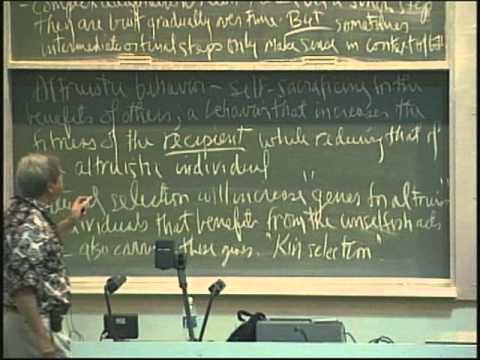 - Complex
step
They are built gradually over time. But sometimes
intermediate steps only make sense in context of
Altruistic behavior - self-sacrificing for the
benefits of others; a behavior that increases the
fitness of the recipient while reducing that of
altruistic individual
selection will increase "genes for altruism"
individuals that benefit from the unselfish acts
also carry these genes. "Kin selection"